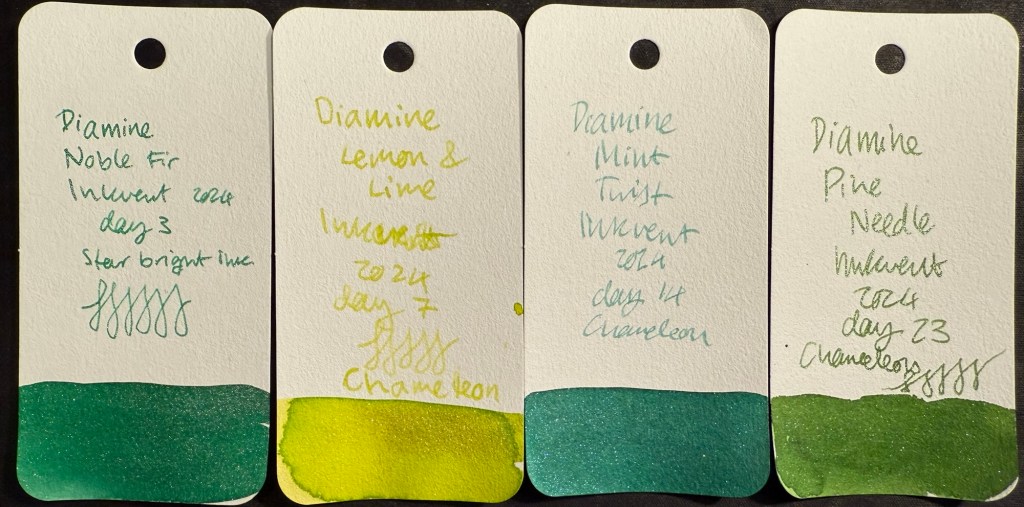 Diamine
Noble Fir
Inkvent 2024
day 3
Star bright ink
Diamine
Lemon &
Lime
Inkvent
2024
day 7
Chameleon
Diamine
Mint
Twist
Inkvent
2024
day 14
Chameleon
Diamine
Pine
Needle
Inkvent
2024
day 23
Chameleon